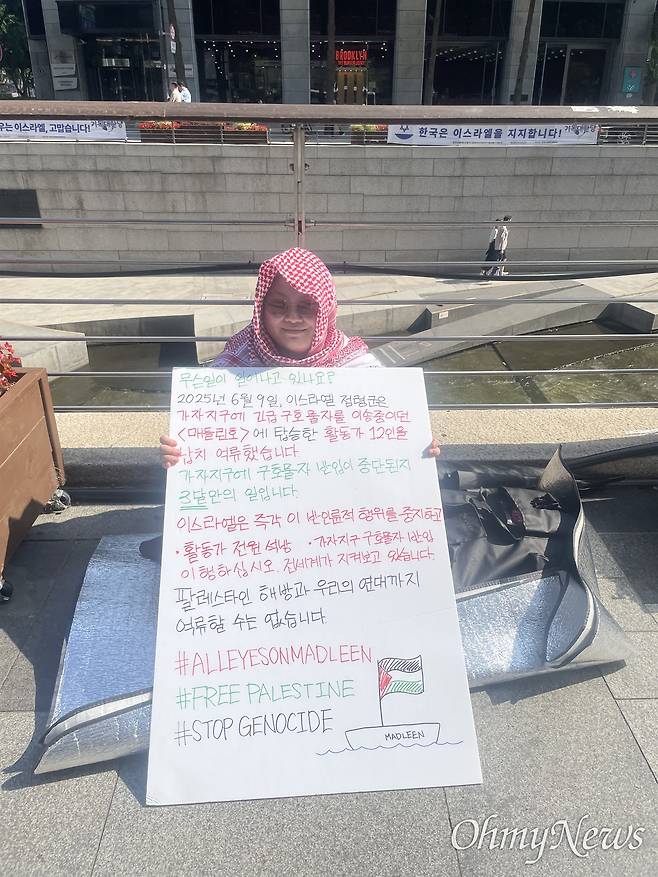 BROOKLYN
이스라엘, 고맙습니다!
한국은 이스라엘을 지지합니다!
무슨일이 일어나고 있나요?
2025년 6월 9일, 이스라엘 점령군은
가자지구에 긴급 구호물자를 이송중이던
<매들린호>에 탑승한 활동가 12인을
납치 억류했습니다.
가자지구에 구호물자 반입이 중단된지
3달만의 일입니다.
이스라엘은 즉각 이 반인륜적 행위를 중지하고
· 활동가 전원 석방 · 가자지구 구호물자 반입
이행하십시오. 전세계가 지켜보고 있습니다.
팔레스타인 해방과 우리의 연대까지
억류할 수는 없습니다.
#ALLEYESONMADLEEN
#FREE PALESTINE
#STOP GENOCIDE
MADLEEN
OhmyNews